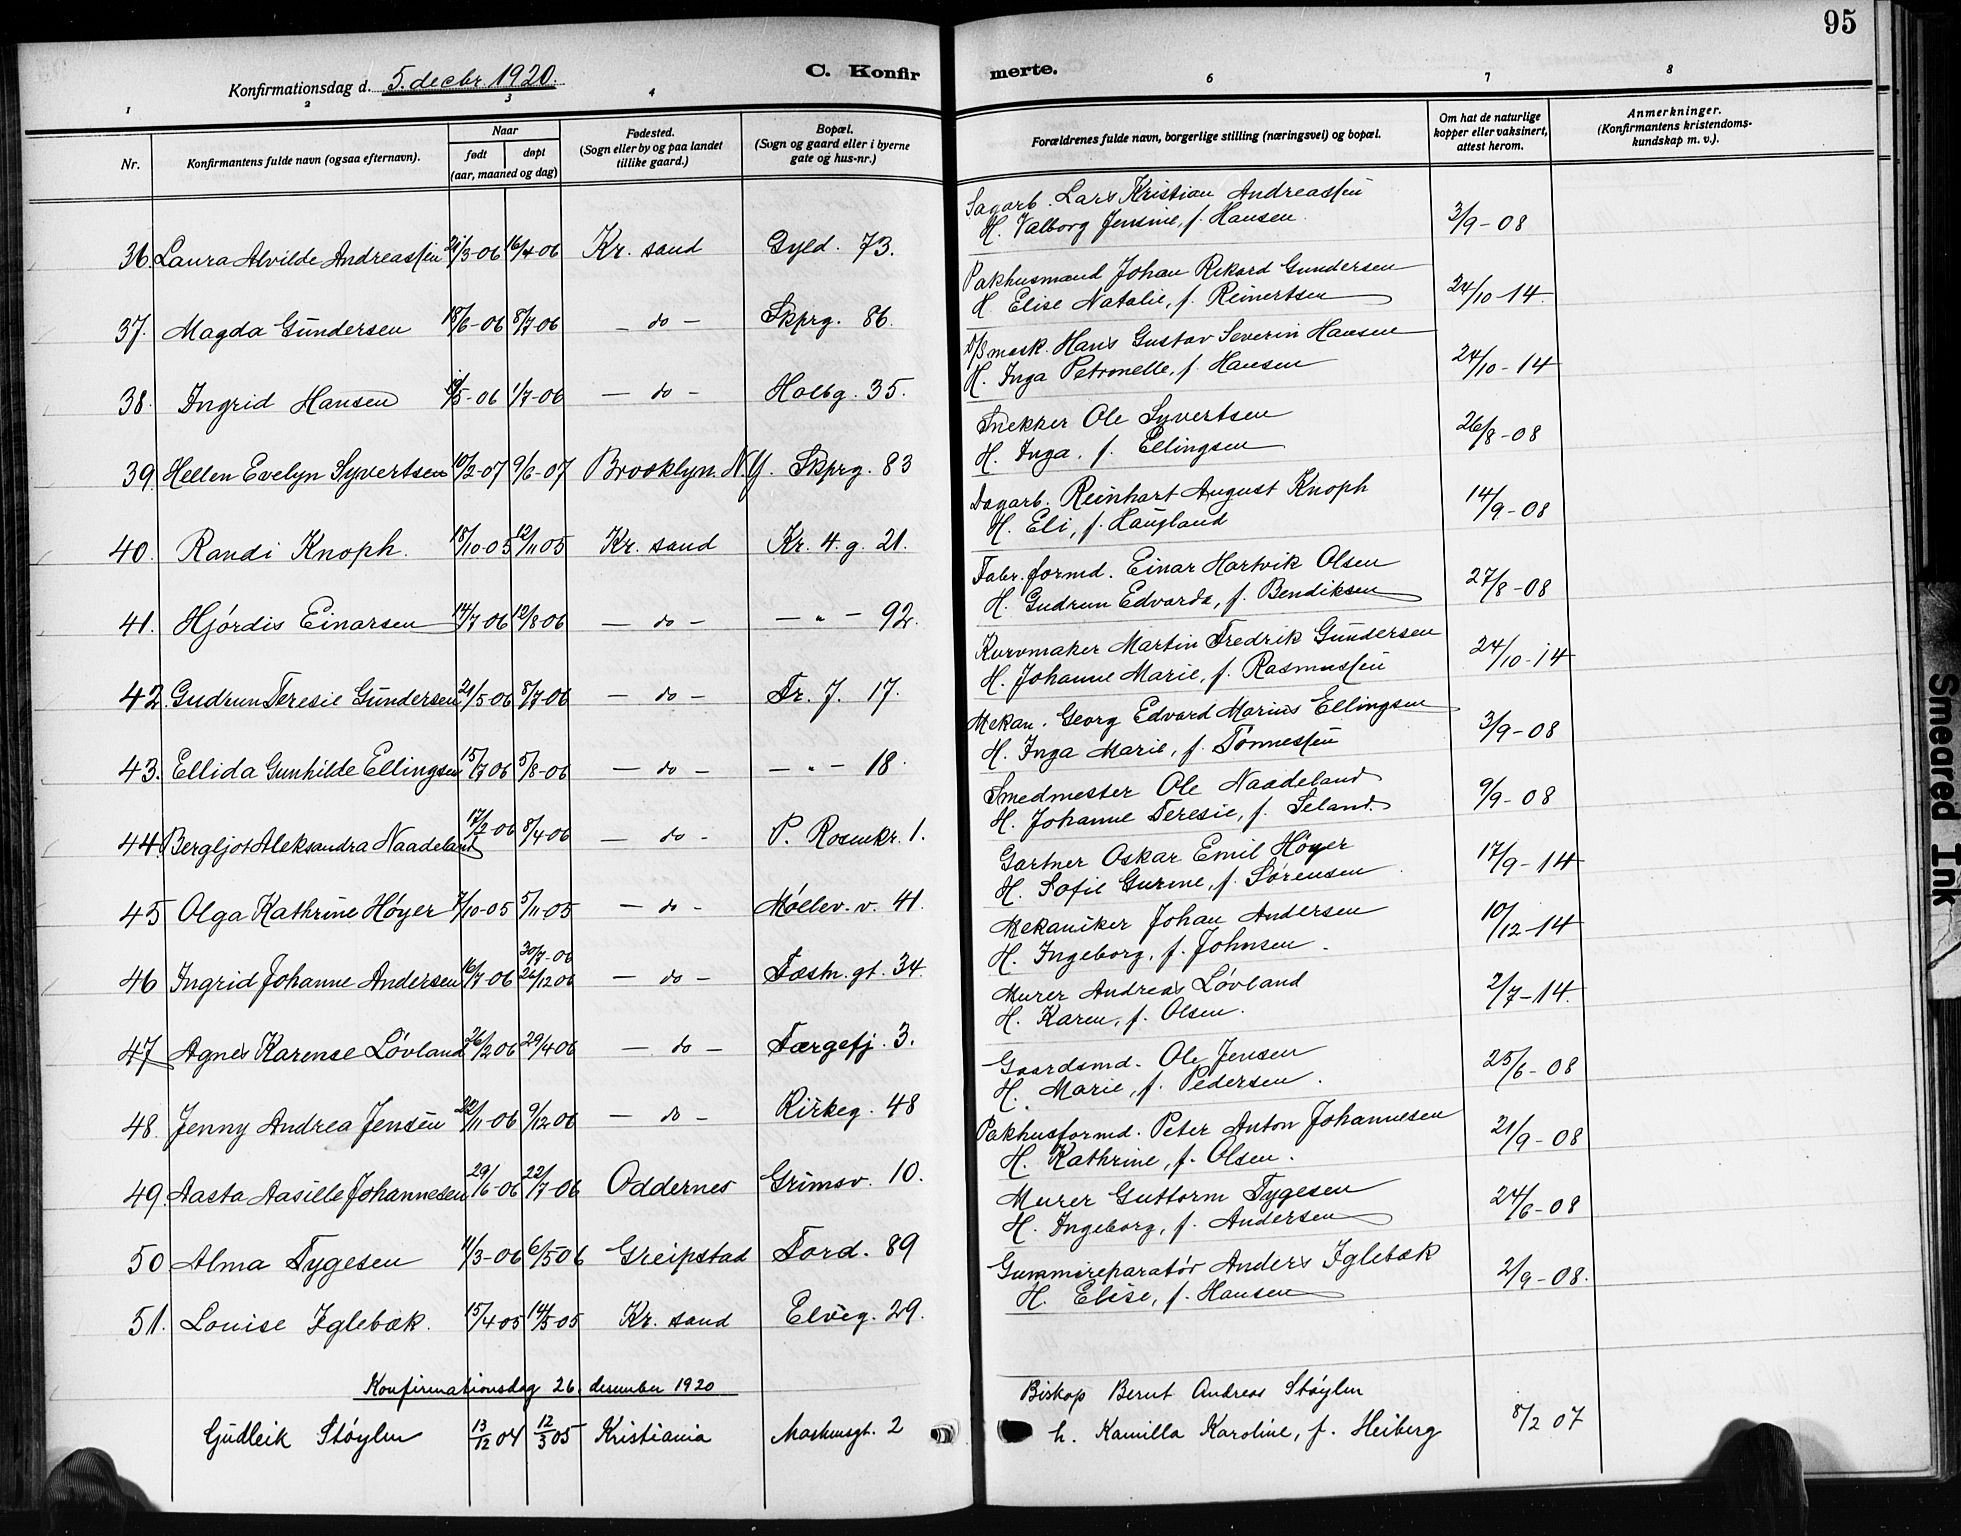 95
Konfirmationsdag d. 5. decbr. 1920.
C. Konfir merte.
1 2 3 4 6 7 8
Nr.
Konfirmantens fulde navn (ogsaa efternavn).
Naar
født døpt
(aar, maaned og dag)
Fødested.
(Sogn eller by og paa landet
tillike gaard.)
Bopæl.
(Sogn og gaard eller i byerne
gate og hus-nr.)
Forældrenes fulde navn, borgerlige stilling (næringsvei) og bopæl.
Om hat de naturlige
kopper eller vaksinert,
attest herom.
Anmerkninger.
(Konfirmantens kristendoms-
kundskap m. v.).
36. Laura Alvilde Andreassen 21/3-06 16/4-06 Kr. sand Gyld. 73.
Sagarb. Lars Kristian Andreassen
H. Valborg Jensine, f. Hansen. 3/9-08
37. Magda Gundersen 18/6-06 8/7-06 - do - Skprg. 86.
Pakhusmand Johan Rikard Gundersen
H Elise Natalie, f. Reinertsen 24/10-14.
38. Ingrid Hansen /5-06 1/7-06 - do - Holbg. 35.
mask. Hans Gustav Severin Hansen
H. Inga Petronelle, f. Hansen 24/10-14
39. Hellen Evelyn Syvertsen 10/2-07 9/6-07 Brooklyn. N.Y. Skprg. 83
Snekker Ole Syvertsen
H. Inga, f. Ellingsen 26/8-08
40. Randi Knoph. 18/10-05 12/11 05 Kr. sand Kr. 4. g. 21.
Dagarb. Reinhart August Knoph
H. Eli, f. Haugland 14/9-08
41. Hjørdis Einarsen 14/7-06 12/8-06 - do - - " - 92.
Fabr. formd. Einar Hartvik Olsen
H. Gudrun Edvarda, f. Bendiksen 27/8-08
42. Gudrun Teresie Gundersen 21/5-06 8/7-06 - do - Tr. J. 17.
Kurvmaker Martin Fredrik Gundersen
H. Johanne Marie, f. Rasmussen 24/10-14
43. Ellida Gunhilde Ellingsen 15/7 06 5/8-06 - do - - " - 18.
Mekan. Georg Edvard Marius Ellingsen
H. Inga Marie, f. Tønnessen 3/9-08
44. Bergljot Aleksandra Naadeland 17/2-06 8/4-06 - do - P. Rosenkr. 1.
Smedmester Ole Naadeland
H. Johanne Teresie, f. Seland. 9/9-08
45 Olga Kathrine Høyer 7/10-05 5/11-05 - do - Møllev. v. 41.
Gartner Oskar Emil Høyer
H. Sofie Gurine, f. Sørensen 17/9-14
46 Ingrid Johanne Andersen 16/7-06 30/7-06 26/12 06 - do - Fæstn. gt. 34.
Mekaniker Johan Andersen
H. Ingeborg, f. Johnsen. 10/12-14
47 Agnes Karense Løvland 26/2 06 29/4 06 - do - Færgefj. 3.
Murer Andreas Løvland
H. Karen, f. Olsen. 2/7-14.
48. Jenny Andrea Jensen 22/11-06 9/12 06 - do - Kirkeg. 48
Gaardsmd. Ole Jensen
H. Marie, f. Pedersen. 25/6-08
49. Aasta Aasille Johannesen 29/6-06 22/7-06 Oddernes Grimsv. 10.
Pakhusformd. Peter Anton Johannesen
H. Kathrine, f. Olsen. 21/9-08
50 Alma Tygesen 11/3-06 6/5 06 Greipstad Tord. 89
Murer Guttorm Tygesen
H. Ingeborg, f. Andersen 24/6-08
51. Louise Iglebæk. 15/4 05 14/5-05 Kr. sand Elveg. 29.
Gummireparatør Anders Iglebæk
H. Elise, f. Hansen 2/9-08.
Konfirmationsdag 26. desember 1920
Gudleik Støylen 13/12 04 12/3 05 Kristiania Markensgt. 2
Biskop Bernt Andreas Støylen
h. Kamilla Karoline, f. Heiberg 8/2 07
Smeared Ink